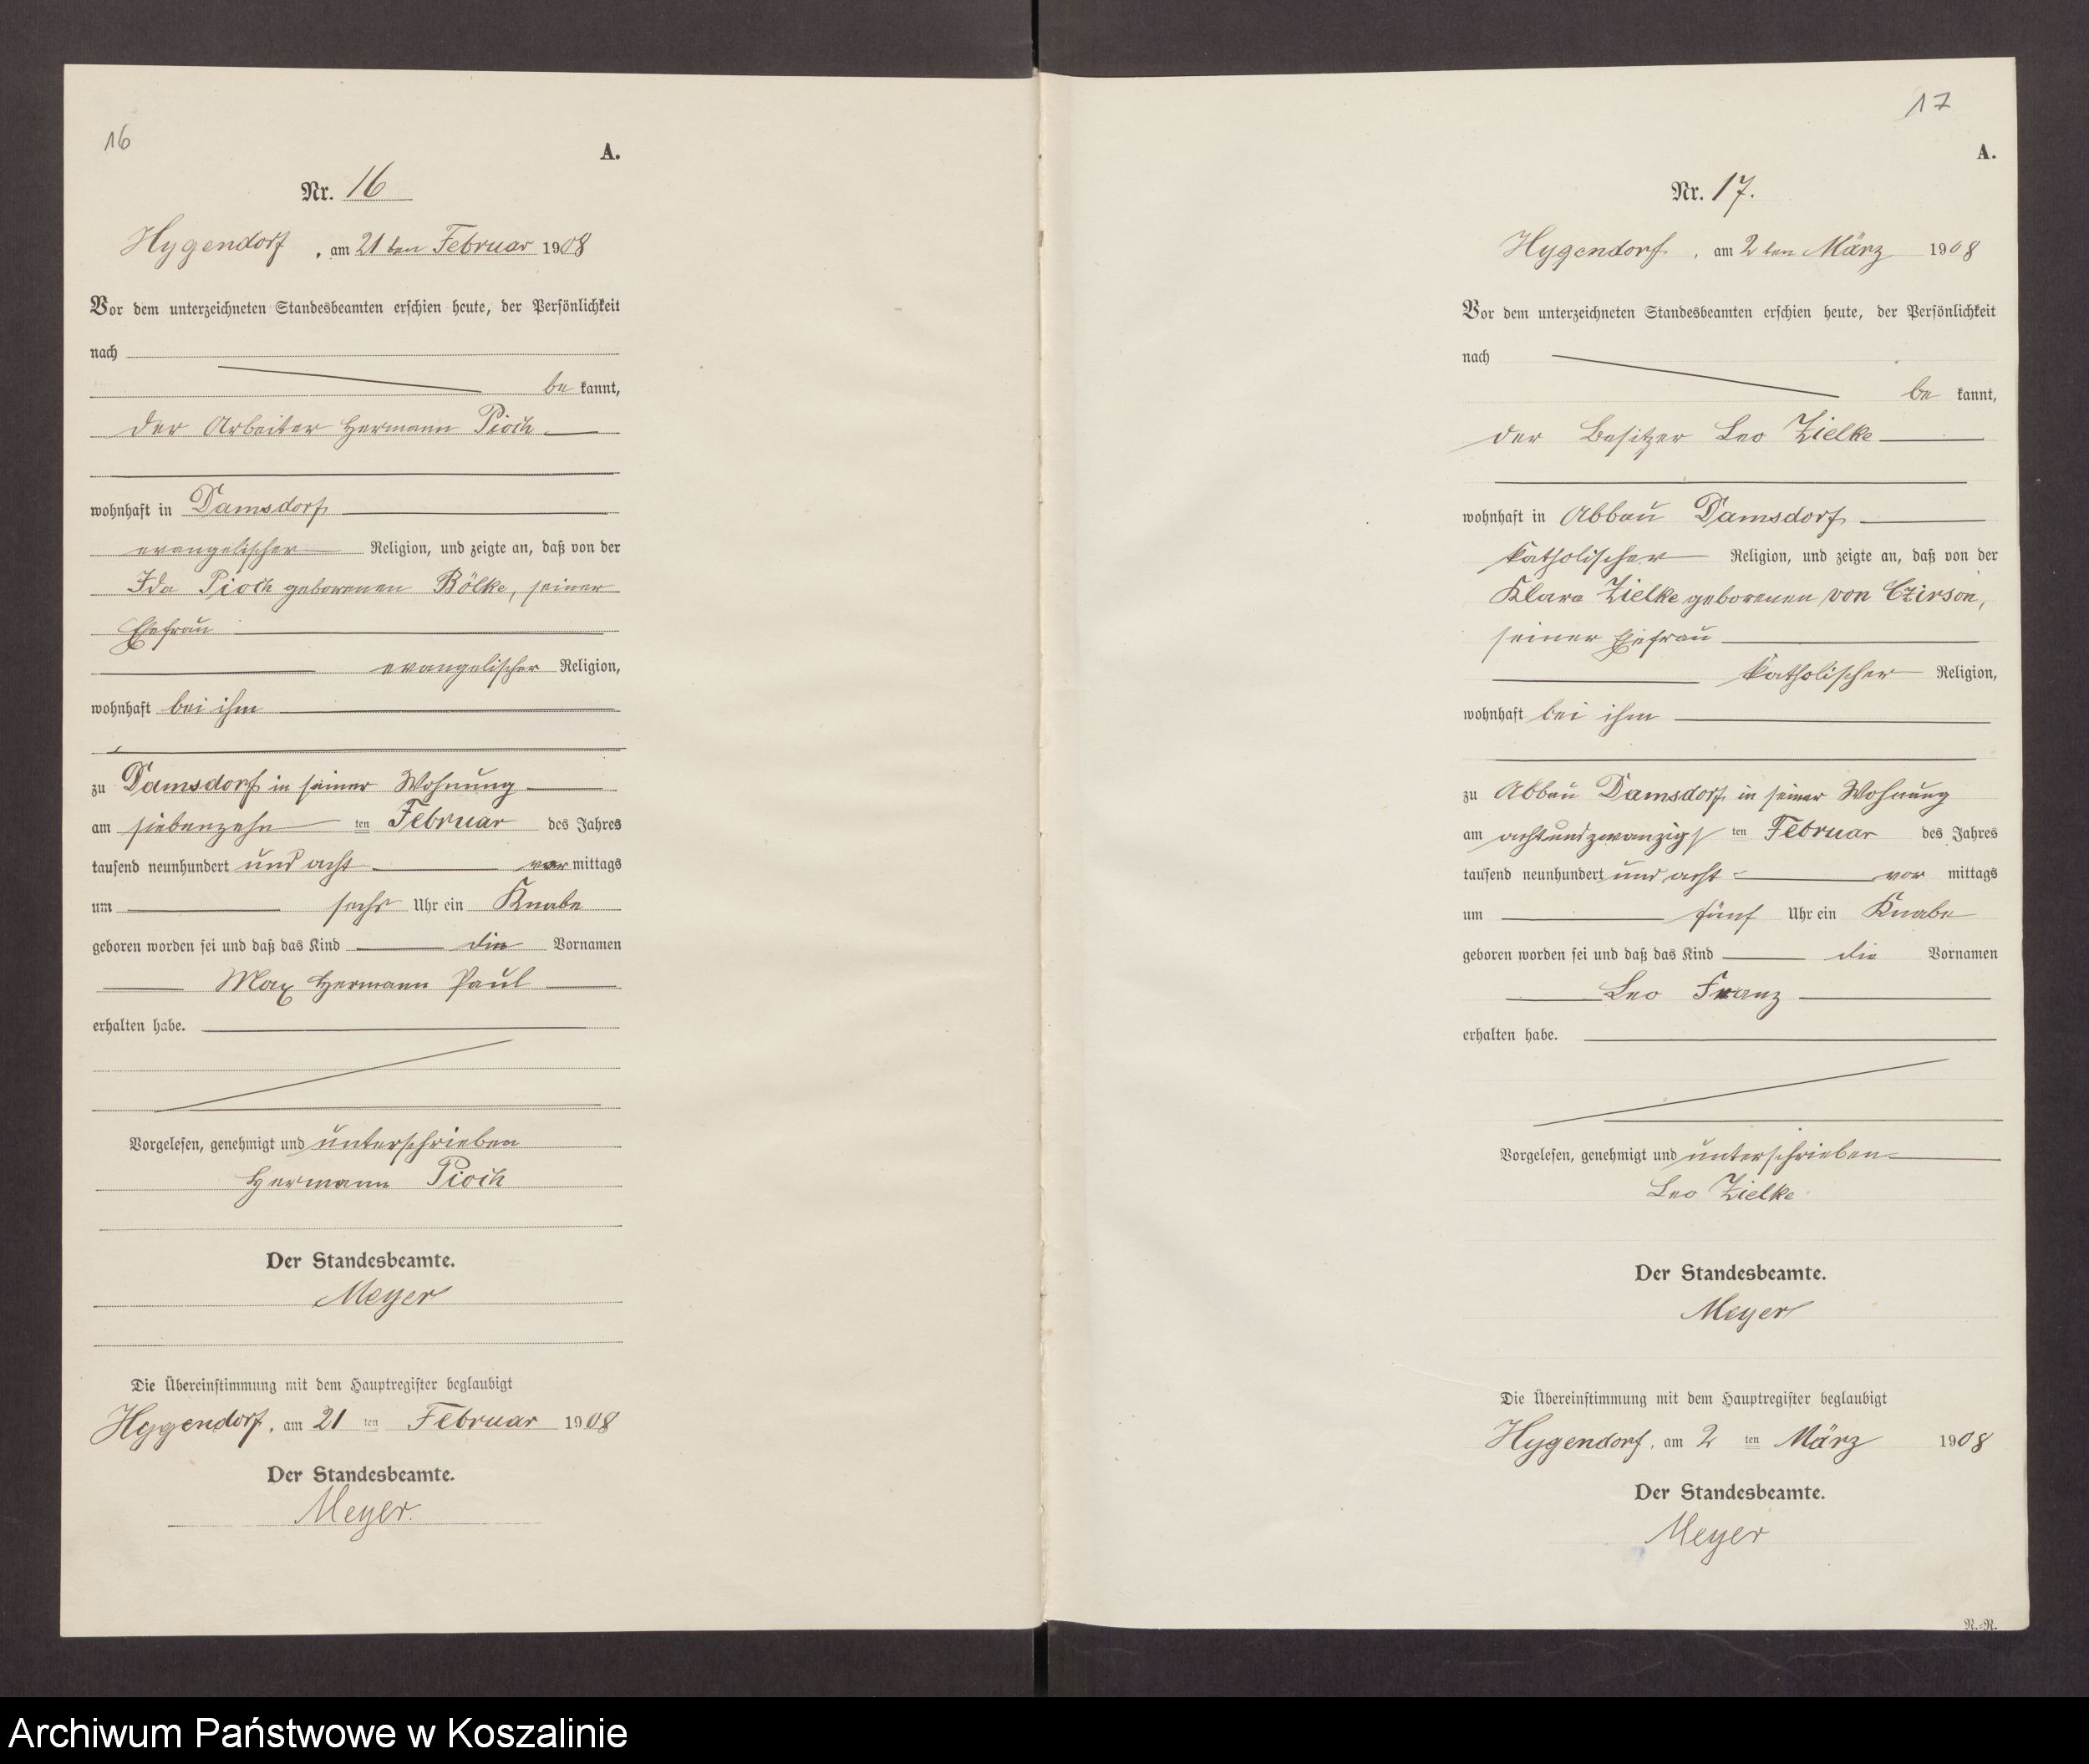 16
A.
Nr. 16
Hygendorf, am 21 ten Februar 1908
Vor dem unterzeichneten Standesbeamten erschien heute, der Persönlichkeit
nach
be kannt,
der Arbeiter Hermann Pioch
wohnhaft in Damsdorf
evangelischer Religion, und zeigte an, daß von der
Ida Pioch geborenen Bölke, seiner
Ehefrau
evangelischer Religion,
wohnhaft bei ihm
zu Damsdorf in seiner Wohnung
am siebenzehn ten Februar des Jahres
tausend neunhundert und acht vor mittags
um sechs Uhr ein Knabe
geboren worden sei und daß das Kind die Vornamen
Max Hermann Paul
erhalten habe.
Vorgelesen, genehmigt und unterschrieben
Hermann Pioch
Der Standesbeamte.
Meyer
Die Übereinstimmung mit dem Hauptregister beglaubigt
Hygendorf, am 21 ten Februar 1908
Der Standesbeamte.
Meyer.
17
A.
Nr. 17.
Hygendorf, am 2 ten März 1908
Vor dem unterzeichneten Standesbeamten erschien heute, der Persönlichkeit
nach
be kannt,
der Besitzer Leo Zielke
wohnhaft in Abbau Damsdorf
katholischer Religion, und zeigte an, daß von der
Klara Zielke geborenen von Czirson,
seiner Ehefrau
katholischer Religion,
wohnhaft bei ihm
zu Abbau Damsdorf in seiner Wohnung
am achtundzwanzigs ten Februar des Jahres
tausend neunhundert und acht vor mittags
um fünf Uhr ein Knabe
geboren worden sei und daß das Kind die Vornamen
Leo Franz
erhalten habe.
Vorgelesen, genehmigt und unterschrieben
Leo Zielke
Der Standesbeamte.
Meyer
Die Übereinstimmung mit dem Hauptregister beglaubigt
Hygendorf, am 2 ten März 1908
Der Standesbeamte.
Meyer
R.-R.
Archiwum Państwowe w Koszalinie